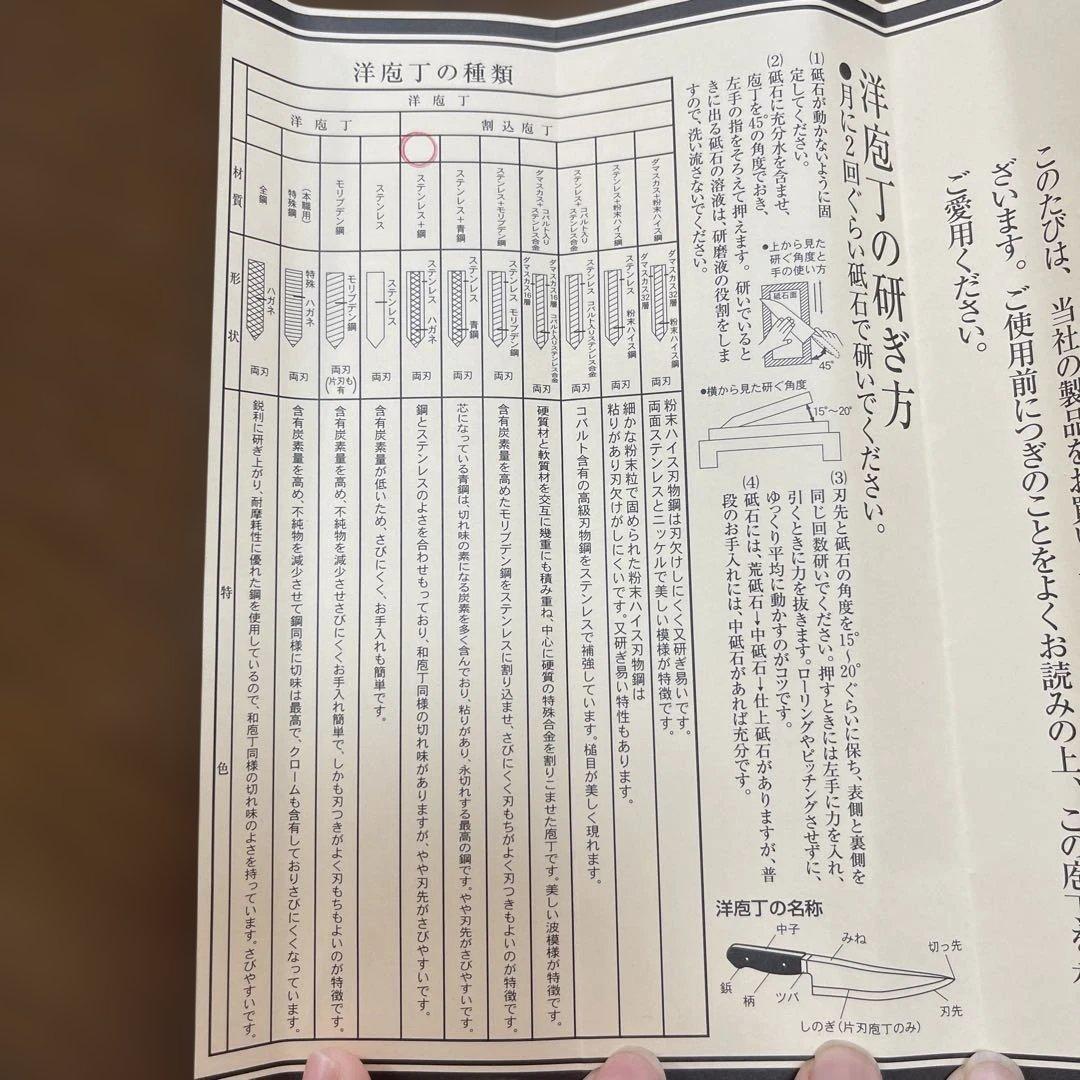 このたびは、当社の製品をお買い
ざいます。ご使用前につぎのことをよくお読みの上、この庖丁を
ご愛用ください。
洋庖丁の研ぎ方
●月に2回ぐらい砥石で研いでください。
(1)砥石が動かないように固
定してください。
(2)砥石に充分水を含ませ、
庖丁を45°の角度でおき、
左手の指をそろえて押えます。研いでいると
きに出る砥石の溶液は、研磨液の役割をしま
すので、洗い流さないでください。
●上から見た
研ぐ角度と
手の使い方
砥石面
45°
●横から見た研ぐ角度
15°〜20°
(3)刃先と砥石の角度を15°〜20°ぐらいに保ち、表側と裏側を
同じ回数研いでください。押すときには左手に力を入れ、
引くときに力を抜きます。ローリングやピッチングさせずに、
ゆっくり平均に動かすのがコツです。
(4)砥石には、荒砥石→中砥石→仕上砥石がありますが、普
段のお手入れには、中砥石があれば充分です。
洋庖丁の名称
中子
みね
切っ先
鋲
柄
ツバ
刃先
しのぎ(片刃庖丁のみ)
洋庖丁の種類
洋庖丁
割込庖丁
洋庖丁
材質
形状
特色
ダマスカス+粉末ハイス鋼
ダマスカス32層
粉末ハイス鋼
両刃
粉末ハイス刃物鋼は刃欠けしにくく又研ぎ易いです。
両面ステンレスとニッケルで美しい模様が特徴です。
ステンレス+粉末ハイス鋼
ステンレス
粉末ハイス鋼
両刃
細かな粉末粒で固められた粉末ハイス刃物鋼は
粘りがあり刃欠けがしにくいです。又研ぎ易い特性もあります。
ステンレス+コバルト入りステンレス合金
ステンレス
コバルト入りステンレス合金
両刃
コバルト含有の高級刃物鋼をステンレスで補強しています。槌目が美しく現れます。
ダマスカス+コバルト入りステンレス合金
ダマスカス16層
ダマスカス16層
コバルト入りステンレス合金
両刃
硬質材と軟質材を交互に幾重にも積み重ね、中心に硬質の特殊合金を割りこませた庖丁です。美しい波模様が特徴です。
ステンレス+モリブデン鋼
ステンレス
モリブデン鋼
両刃
含有炭素量を高めたモリブデン鋼をステンレスに割り込ませ、さびにくく刃もちがよく刃つきもよいのが特徴です。
ステンレス+青鋼
ステンレス
青鋼
両刃
芯になっている青鋼は、切れ味の素になる炭素を多く含んでおり、粘りがあり、永切れする最高の鋼です。やや刃先がさびやすいです。
ステンレス+鋼
ステンレス
ハガネ
両刃
鋼とステンレスのよさを合わせもっており、和庖丁同様の切れ味がありますが、やや刃先がさびやすいです。
ステンレス
ステンレス
両刃
含有炭素量が低いため、さびにくく、お手入れも簡単です。
モリブデン鋼
モリブデン鋼
両刃
(片刃も有)
含有炭素量を高め、不純物を減少させさびにくくお手入れ簡単で、しかも刃つきがよく刃もちもよいのが特徴です。
(本職用)
特殊鋼
特殊ハガネ
両刃
含有炭素量を高め、不純物を減少させて鋼同様に切味は最高で、クロームも含有しておりさびにくくなっています。
全鋼
ハガネ
両刃
鋭利に研ぎ上がり、耐摩耗性に優れた鋼を使用しているので、和庖丁同様の切れ味のよさを持っています。さびやすいです。